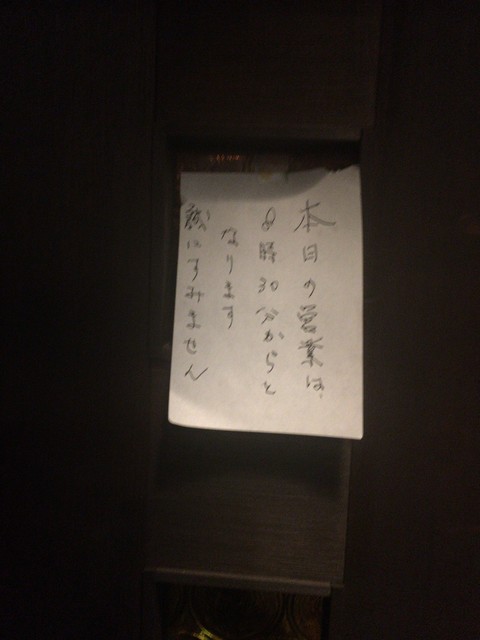 本日の営業は、
8時30分からと
なります
誠にすみません